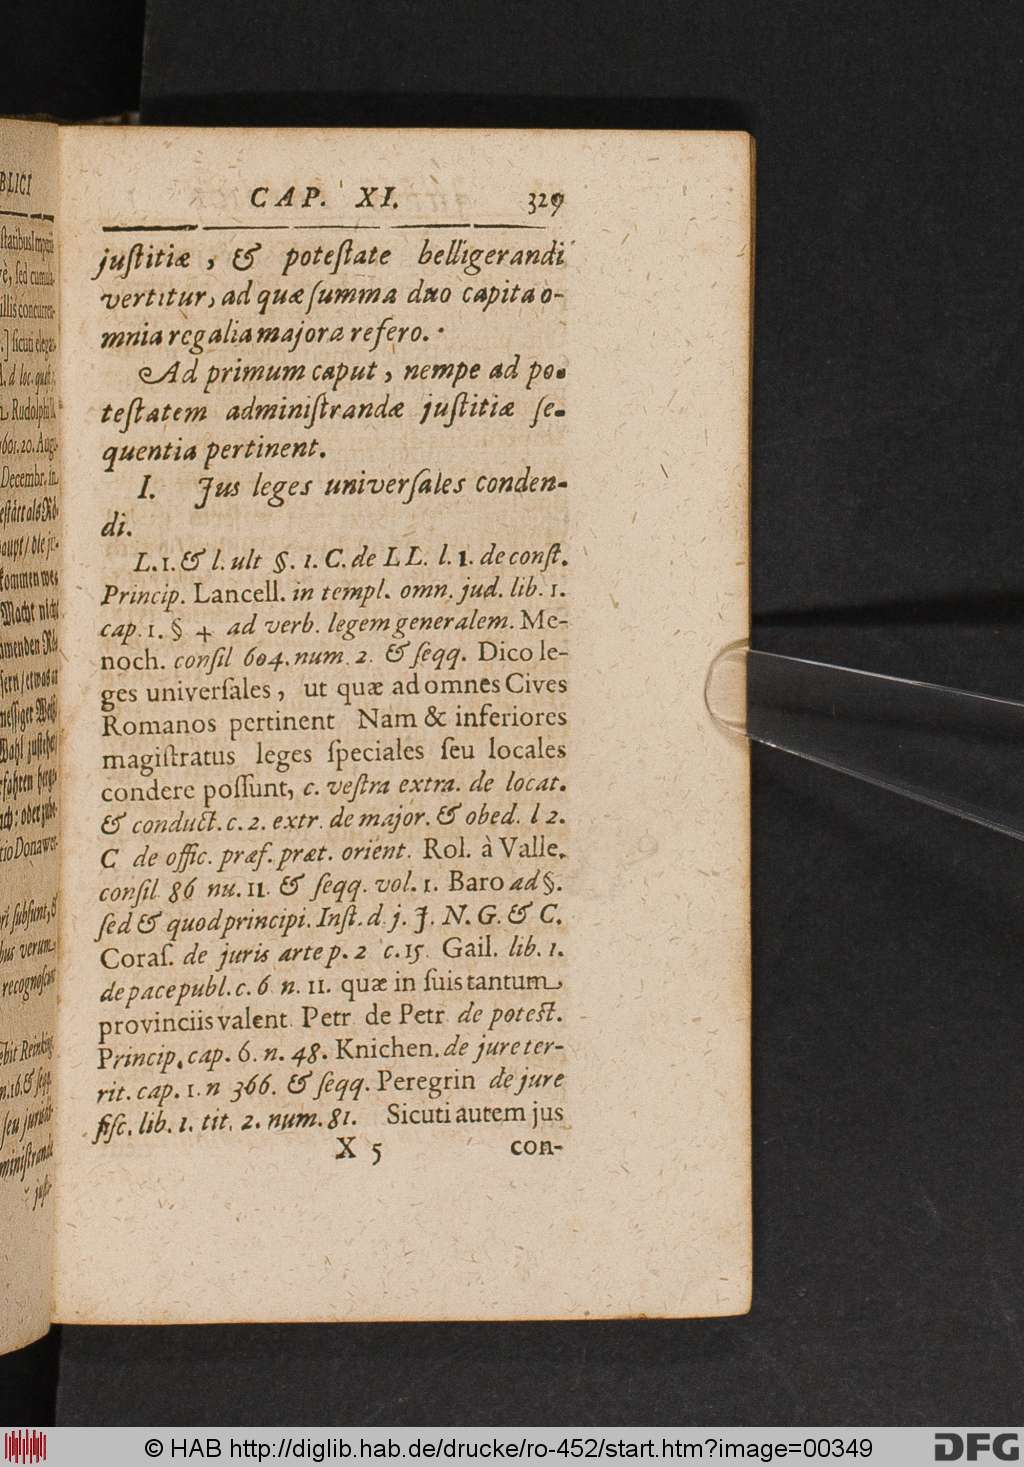 BLICI
Rudolphi
Decembr. in
kommen wes
Macht nicht
bus verum
recognoscunt
CAP. XI. 329
juſtitiæ, & poteſtate belligerandi
vertitur, ad quæ ſumma duo capita o-
mnia regalia majora refero.
Ad primum caput, nempe ad po-
teſtatem adminiſtrandæ juſtitiæ ſe-
quentia pertinent.
I. Jus leges univerſales conden-
di.
L. 1. & l. ult §. 1. C. de LL. l. 1. de conſt.
Princip. Lancell. in templ. omn. jud. lib. 1.
cap. 1. § 4 ad verb. legem generalem. Me-
noch. conſil 604. num. 2. & ſeqq. Dico le-
ges univerſales, ut quæ ad omnes Cives
Romanos pertinent Nam & inferiores
magiſtratus leges ſpeciales ſeu locales
condere poſſunt, c. veſtra extra. de locat.
& conduct. c. 2. extr. de major. & obed. l 2.
C de offic. præf. præt. orient. Rol. à Valle.
conſil 86 nu. 11. & ſeqq. vol. 1. Baro ad §.
ſed & quod principi. Inſt. d. j. J. N. G. & C.
Coraſ. de juris arte p. 2 c. 15. Gail. lib. 1.
de pace publ. c. 6 n. 11. quæ in ſuis tantum
provinciis valent. Petr de Petr de poteſt.
Princip. cap. 6. n. 48. Knichen. de jure ter-
rit. cap. 1. n 366. & ſeqq. Peregrin de jure
fiſc. lib. 1. tit. 2. num. 81. Sicuti autem jus
X 5 con-
© HAB http://diglib.hab.de/drucke/ro-452/start.htm?image=00349 DFG